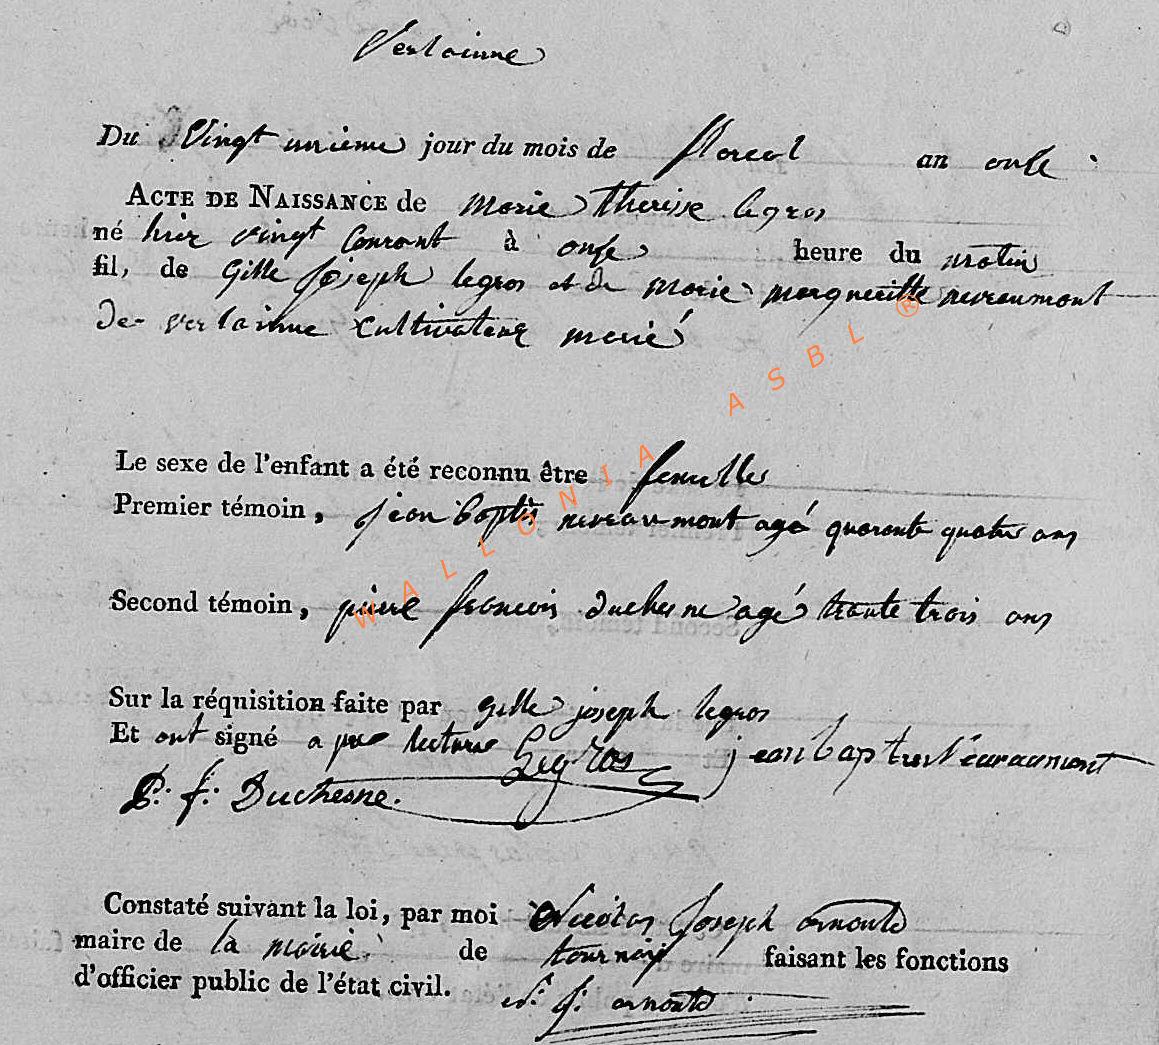 Verlainne
Du Vingt unieme jour du mois de floreal an onse
ACTE DE NAISSANCE de marie therisse legros
né hier vingt Courant à onse heure du matin
fil, de Gille joseph legros et de marie margueritte nevraumont
de verlainne Cultivateur marié
Le sexe de l'enfant a été reconnu être femelle
Premier témoin, jean baptis nevraumont agé quarente quatre ans
Second témoin, pierre francois duchesne agé trante trois ans
Sur la réquisition faite par gille joseph legros
Et ont signé a pres lecture Legros jean baptiste
P: f: Duchesne.
Constaté suivant la loi, par moi Nicolas Joseph arnould
maire de la mairie de tournay faisant les fonctions
d'officier public de l'état civil. n: j: arnould
WALLONIA ASBL ®